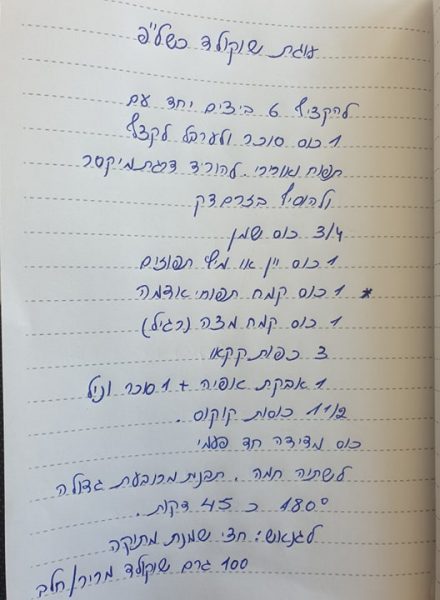 עוגת שוקולד כשל"פ
להקציף 6 ביצים יחד עם
1 כוס סוכר ולערבל לקצף
תפוח ואוורירי. להוריד דרגת מיקסר
ולהוסיף בזרם דק
3/4 כוס שמן
1 כוס יין או מיץ תפוזים
* 1 כוס קמח תפוחי אדמה
1 כוס קמח מצה (רגיל)
3 כפות קקאו
1 אבקת אפיה + 1 סוכר וניל
1 1/2 כוסות קוקוס.
כוס מדידה חד פעמי
לשתיה חמה. תבנית מרובעת גדולה
180° כ 45 דקות.
לגנאש: חצי שמנת מתוקה
100 גרם שוקולד מריר/חלב